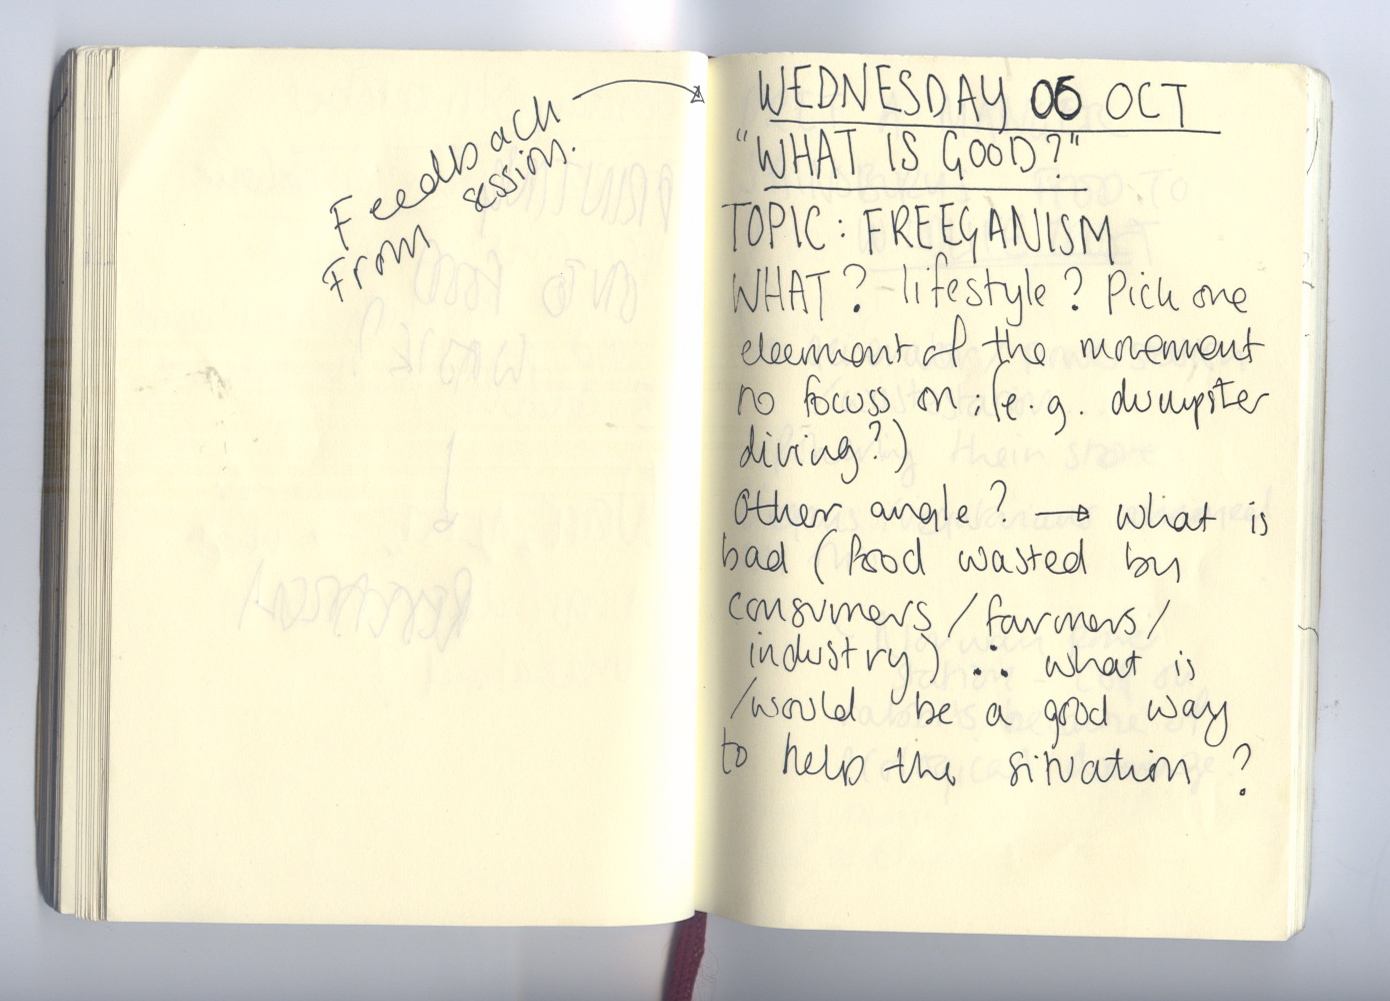 Feedback
session.
From
WEDNESDAY 06 OCT
"WHAT IS GOOD?"
TOPIC: FREEGANISM
WHAT? lifestyle? Pick one
element of the movement
no focus on; (e.g. dumpster
diving?)
Other angle? → what is
bad (food wasted by
consumers/farmers/
industry) ∴ what is
/would be a good way
to help the situation?